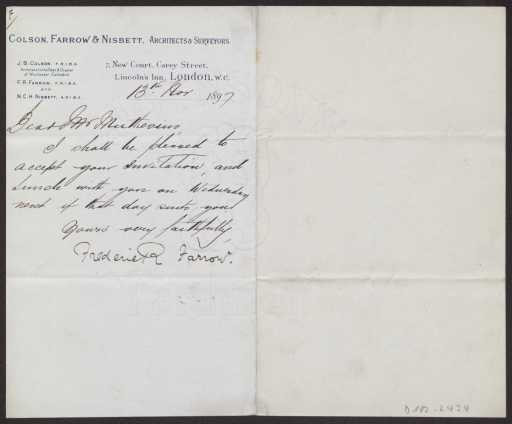 COLSON, FARROW & NISBETT, ARCHITECTS & SURVEYORS.
J. B. COLSON, F.R.I.B.A.
Architect to the Dean & Chapter
of Winchester Cathedral
F. R. FARROW, F.R.I.B.A.
AND
N. C. H. NISBETT, A.R.I.B.A.
7, New Court, Carey Street,
Lincoln's Inn, London, W.C.
13th Nov 1897
Dear Mr
I shall be pleased to
accept your invitation, and
lunch with you on Wednesday
next if that day suits you
Yours very faithfully,
Frederic R Farrow.